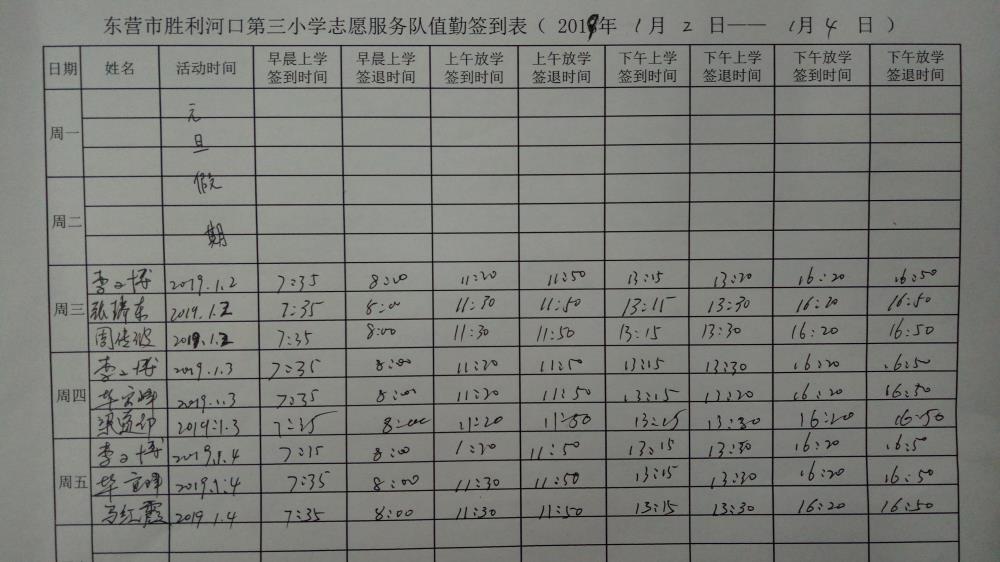 东营市胜利河口第三小学志愿服务队值勤签到表（ 2019年 1月 2 日—— 1月 4 日 ）
日期 姓名 活动时间 早晨上学签到时间 早晨上学签退时间 上午放学签到时间 上午放学签退时间 下午上学签到时间 下午上学签退时间 下午放学签到时间 下午放学签退时间
周一 元旦
周二 假期
李文博 2019.1.2 7:35 8:00 11:20 11:50 13:15 13:20 16:20 16:50
周三 张瑞东 2019.1.2 7:35 8:00 11:30 11:50 13:15 13:30 16:20 16:50
周 2019.1.2 7:35 8:00 11:30 11:50 13:15 13:30 16:20 16:50
李文博 2019.1.3 7:35 8:00 11:20 11:50 13:15 13:30 16:20 16:50
周四 华 2019.1.3 7:35 8:00 11:20 11:50 13:15 13:20 16:20 16:50
梁 2019.1.3 8:00 11:20 11:50 13:15 13:30 16:20 16:50
李文博 2019.1.4 7:15 8:00 1:20 11:50 13:15 13:30 16:20 16:5
周五 华 2019.1.4 7:35 8:00 11:30 11:50 13:15 13:30 16:20 16:50
马红霞 2019 1.4 7:35 8:00 11:30 11:50 13:15 13:30 16:20 16:50